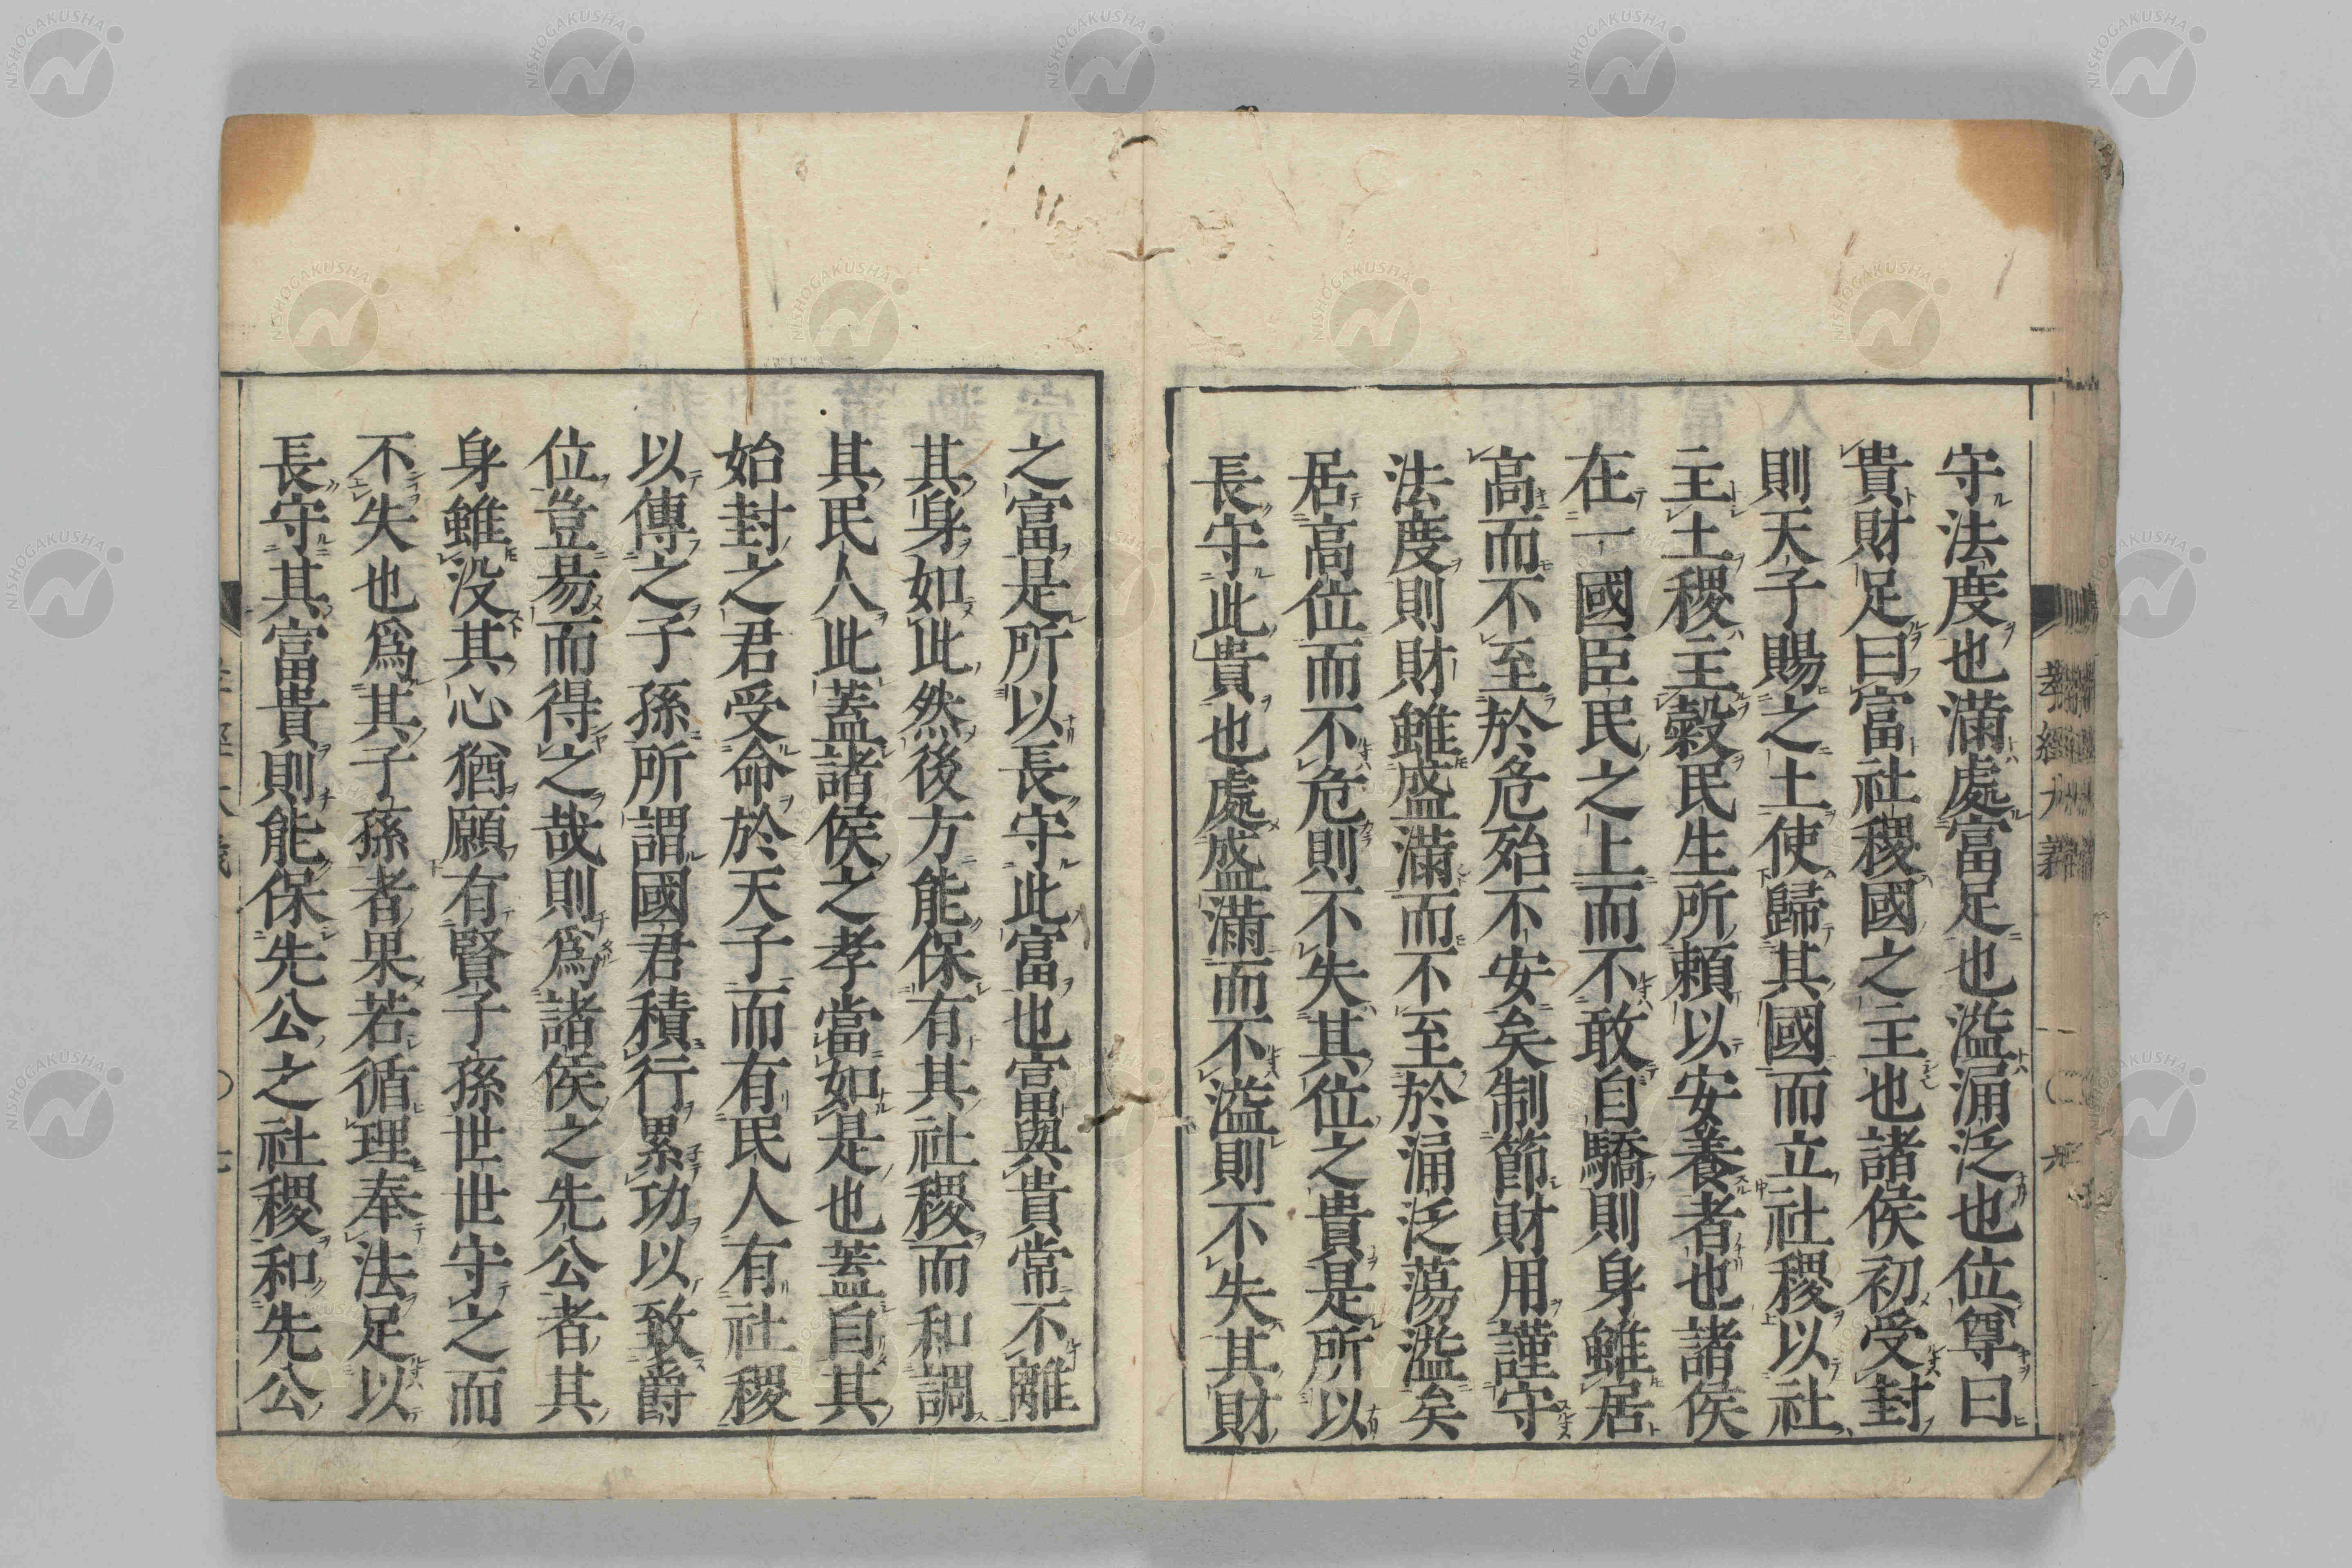 守法度也滿處富足也溢涌泛也位尊曰
貴財足曰富社稷國之主也諸侯初受封
則天子賜之土使歸其國而立社稷以社
主土稷主穀民生所頼以安養者也諸侯
在一國臣民之上而不敢自驕則身雖居
高而不至於危殆不安矣制節財用謹守
法度則財雖盛滿而不至於涌泛蕩溢矣
居高位而不危則不失其位之貴是所以
長守此貴也處盛滿而不溢則不失其財
之富是所以長守此富也富與貴常不離
其身如此然後方能保有其社稷而和調
其民人此蓋諸侯之孝當如是也蓋自其
始封之君受命於天子而有民人有社稷
以傳之子孫所謂國君積行累功以致爵
位豈易而得之哉則爲諸侯之先公者其
身雖没其心猶願有賢子孫世世守之而
不失也爲其子孫者果若循理奉法足以
長守其富貴則能保先公之社稷和先公
孝經大義
NISHOGAKUSHA